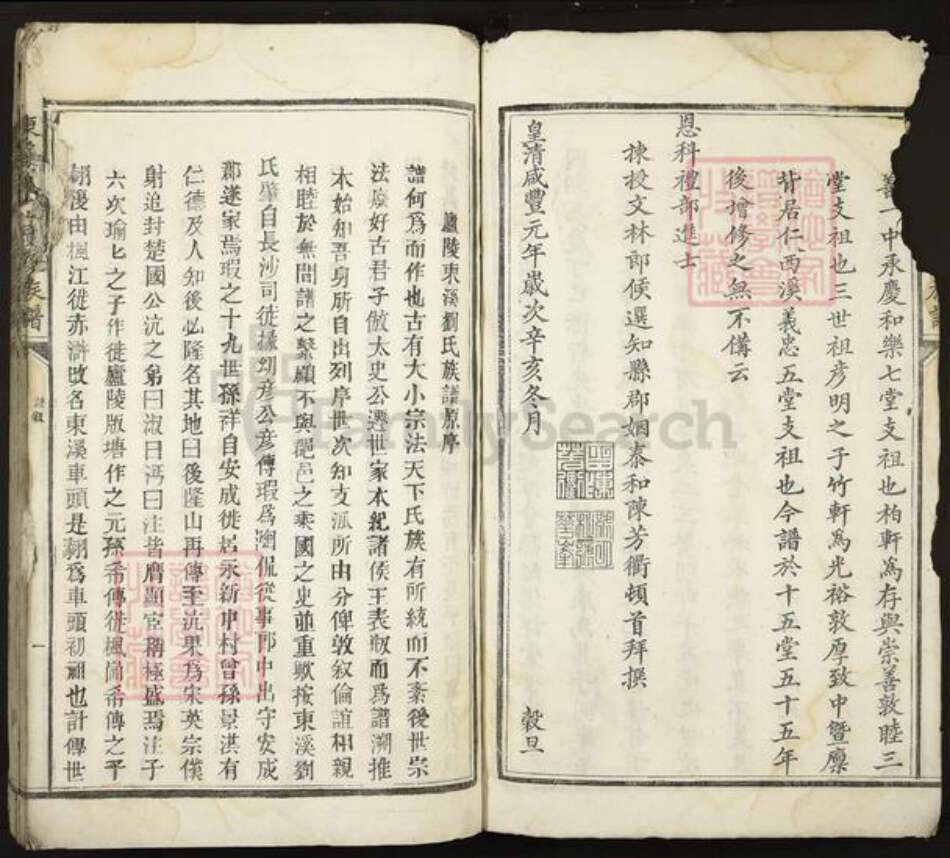 善一中承慶和樂七堂支祖也柏軒為存與崇善敦睦三
堂支祖也三世祖彦明之子竹軒為光裕敦厚致中曁
背居仁西溪義忠五堂支祖也今譜於十五堂五十五年
後增修之無不備云
恩科禮部進士
揀授文林郎候選知縣郡姻泰和陳芳衢頓首拜撰
皇清咸豐元年歲次辛亥冬月 穀旦
廬陵東溪劉氏族譜原序
譜何爲而作也古有大小宗法天下氏族有所統而不紊後世宗
法廢好古君子倣太史公遷世家本紀諸侯王表敘而爲譜溯推
本始知吾身所自出列序世次知支派所由分俾敦敘倫誼相親
相睦於無間譜之繫顧不與郡邑之乘國之史並重歟按東溪劉
氏肇自長沙司徒掾幼彦公彦傳瑕爲陶侃從事郎中出守安成
郡遂家焉瑕之十九世孫祥自安成徙居永新中村曾孫景洪有
仁德及人知後必隆名其地曰後隆山再傳至沆果爲宋英宗僕
射追封楚國公沆之弟曰淑曰沔曰注皆膺顯宦稱極盛焉注子
六次瑜七之子作徙廬陵版塘作之元孫希傳徙楓崗希傳之子
翃復由楓江徙赤滸改名東溪車頭是翃爲車頭初祖也計傳世
譜敘
一
FamilySearch